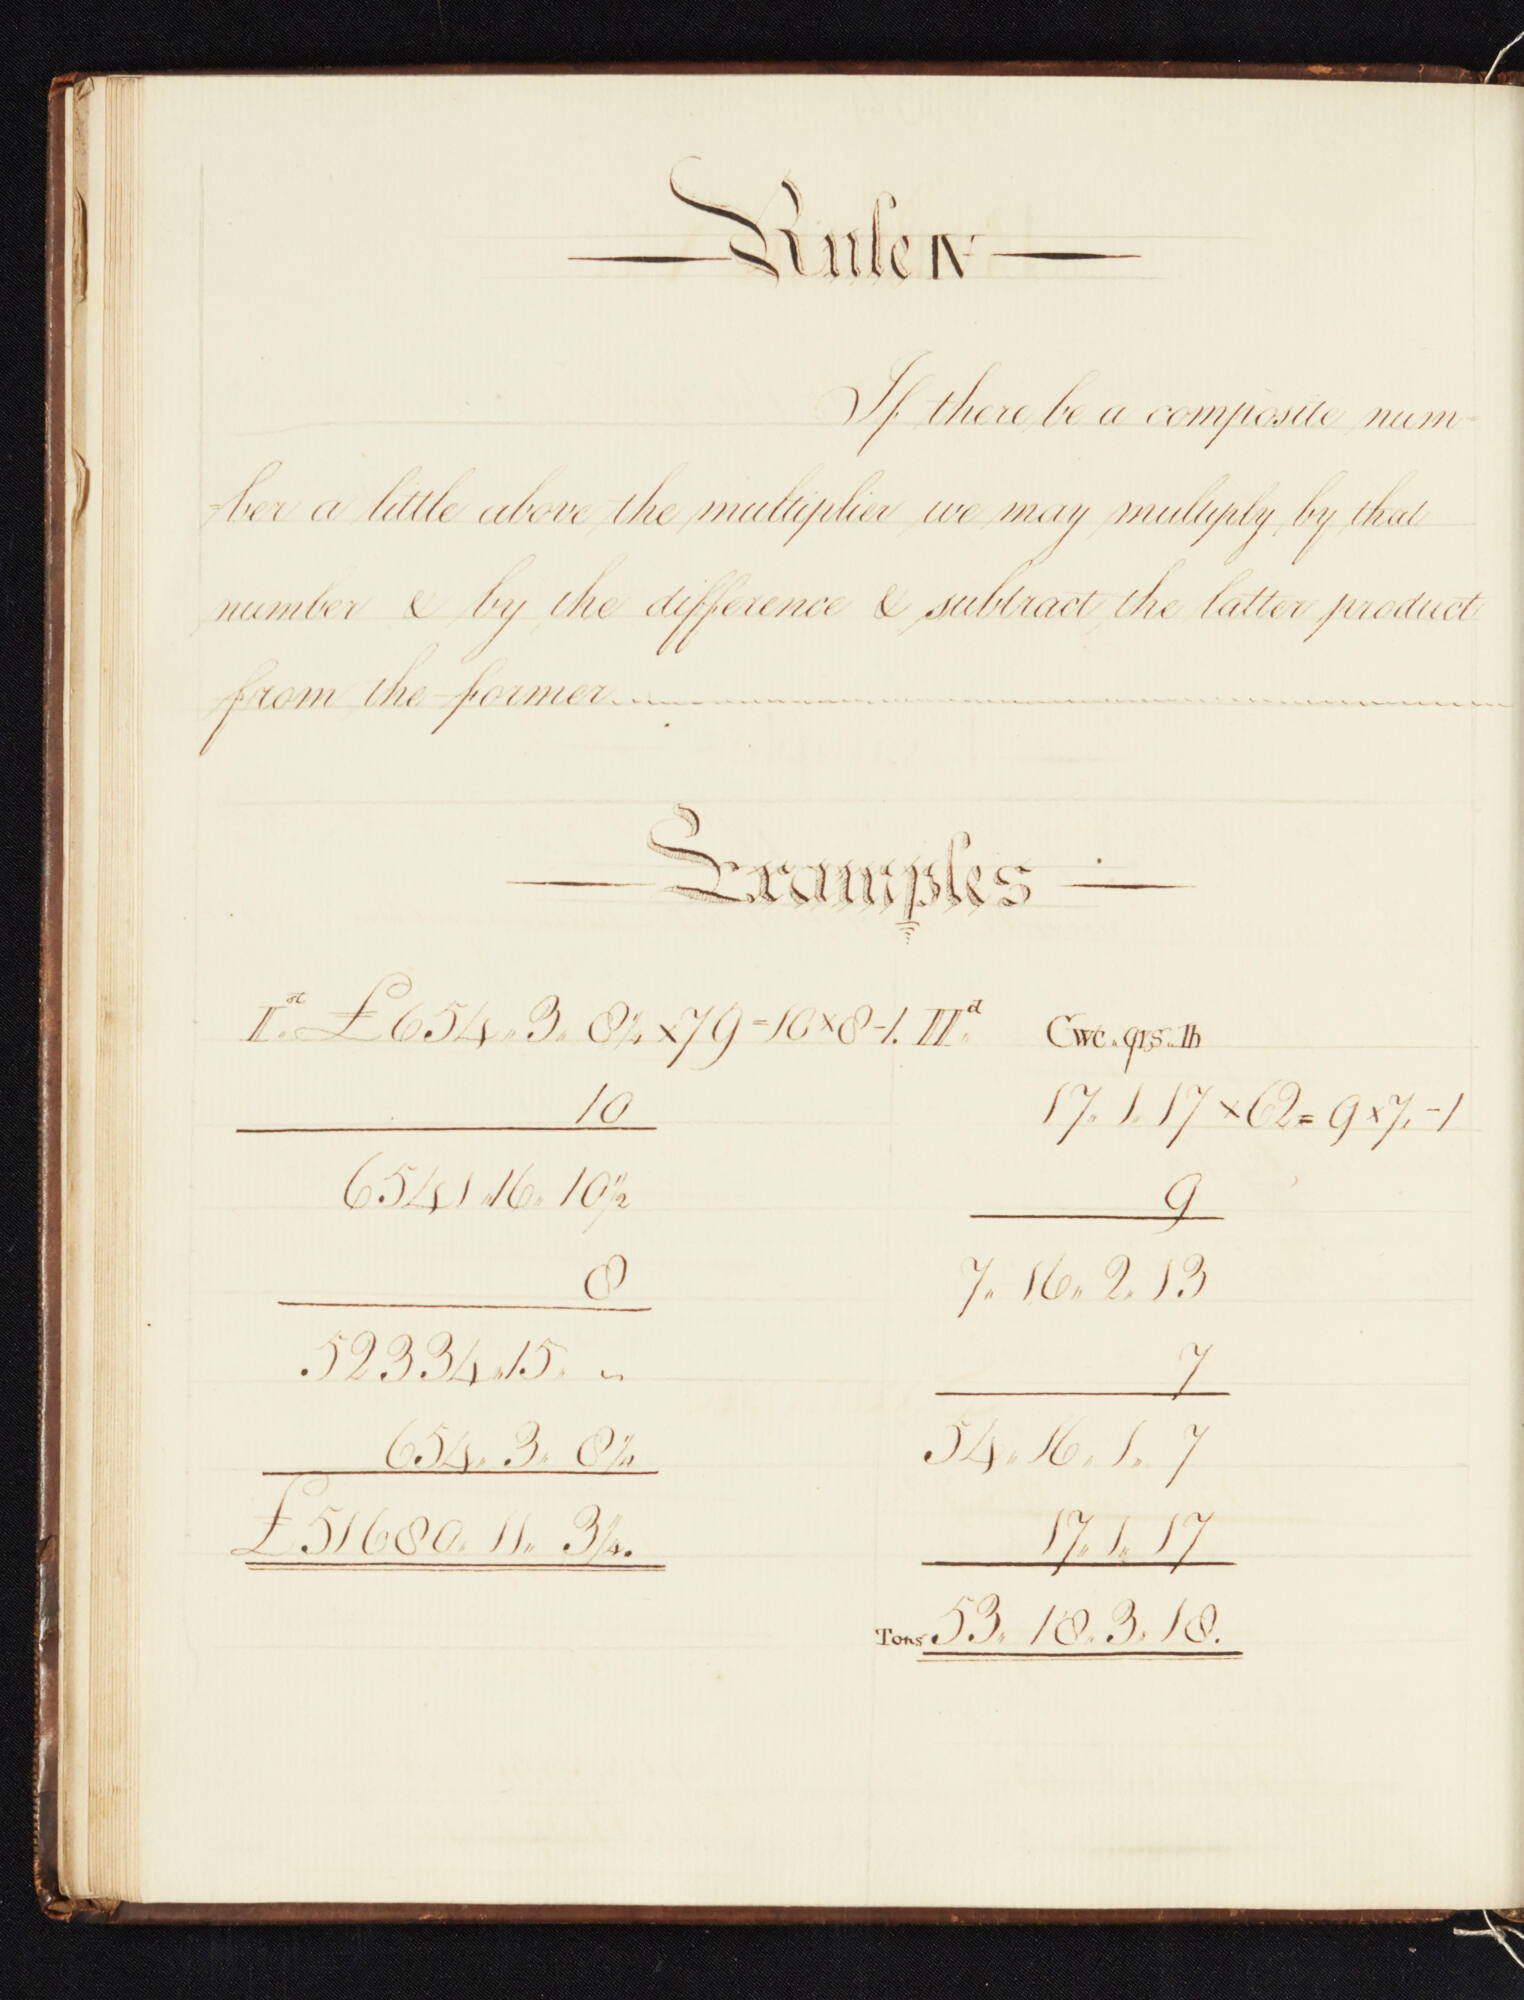 Rule IV
If there be a composite num-
-ber a little above the multiplier we may multiply by that
number & by the difference & subtract the latter product
from the former
Examples
I.st £654.. 3.. 8¼ × 79 = 10 × 8 - 1.
10
6541.. 16.. 10½
8
52334.. 15.. ~
654.. 3.. 8¼
£51680.. 11.. 3¾.
II.d Cwt.. qrs.. lb
17.. 1.. 17 × 62 = 9 × 7. - 1
9
7.. 16.. 2.. 13
7
54.. 16.. 1.. 7
17.. 1.. 17
Tons 53.. 18.. 3.. 18.